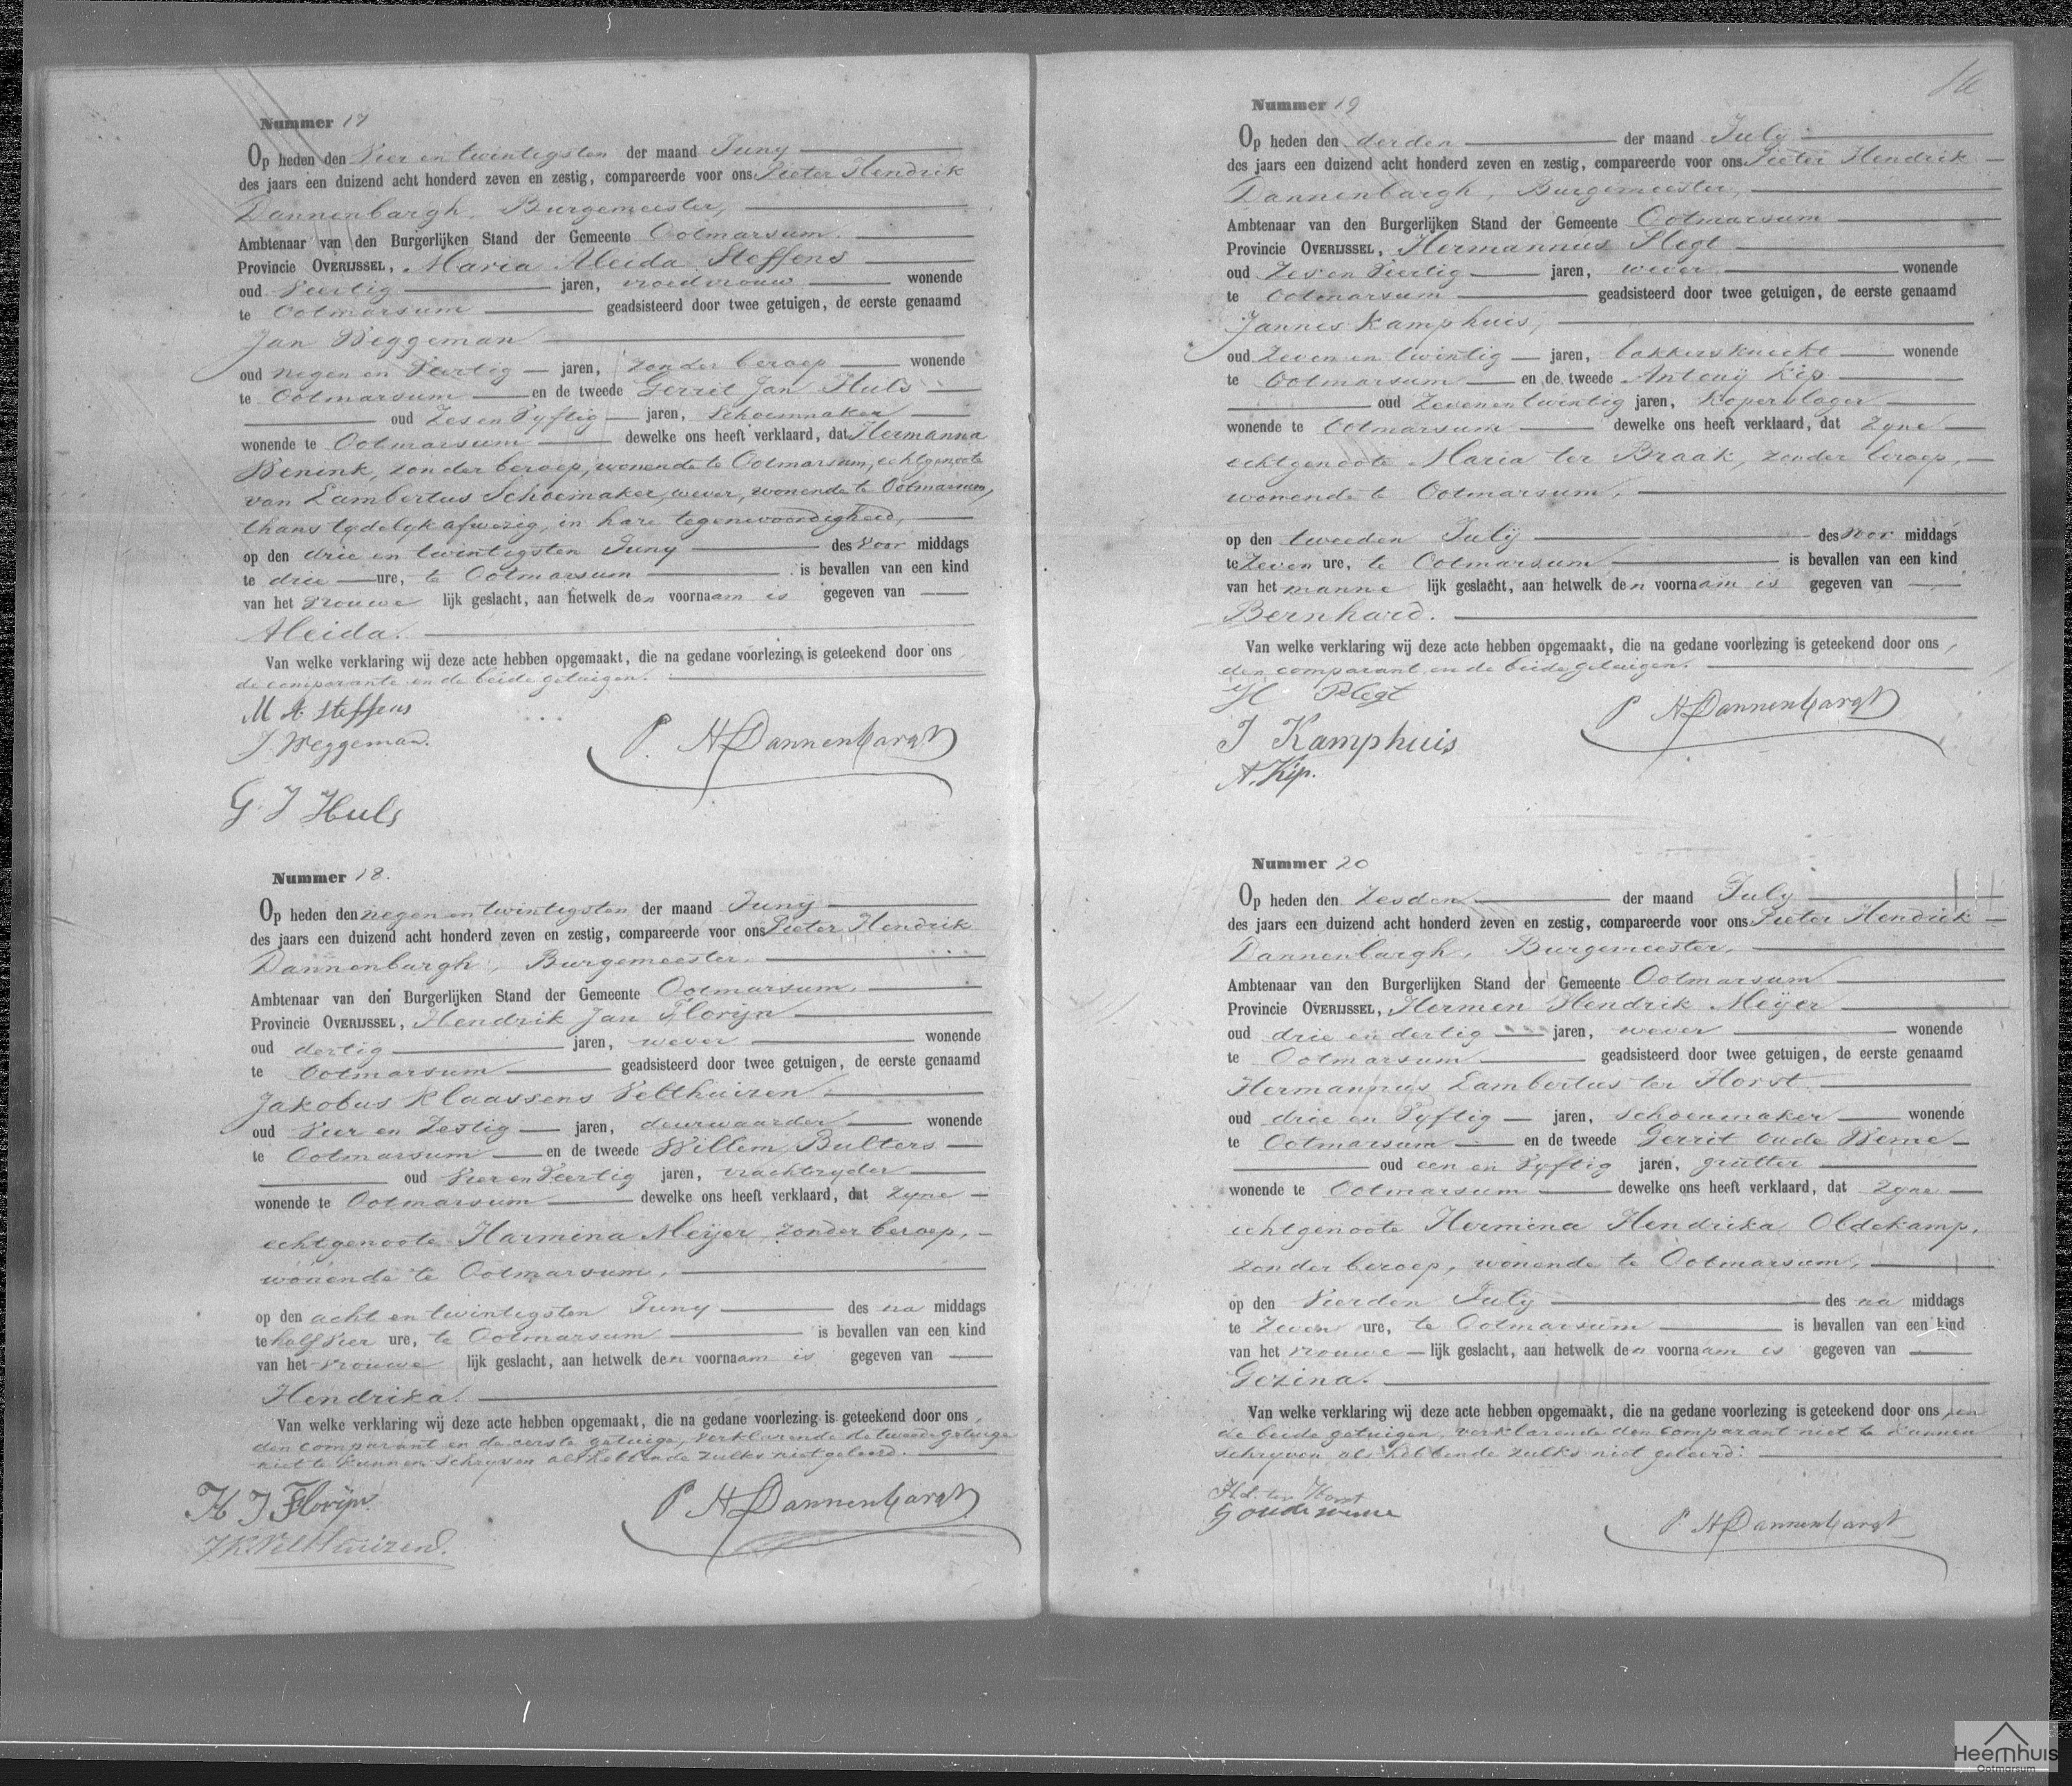 Nummer 17
Op heden den Vier en twintigsten der maand Juny
des jaars een duizend acht honderd zeven en zestig, compareerde voor ons Pieter Hendrik
Dannenbargh, Burgemeester,
Ambtenaar van den Burgerlijken Stand der Gemeente Ootmarsum.
Provincie OVERIJSSEL, Maria Aleida Steffens
oud Veertig jaren, vroedvrouw wonende
te Ootmarsum geadsisteerd door twee getuigen, de eerste genaamd
Jan Weggeman
oud negen en Veertig jaren, zonder beroep wonende
te Ootmarsum en de tweede Gerrit Jan Huls
oud Zes en Vyftig jaren, Schoenmaker
wonende te Ootmarsum dewelke ons heeft verklaard, dat Hermanna
Benink, zonder beroep, wonende te Ootmarsum, echtgenoote
van Lambertus Schoemaker, wever, wonende te Ootmarsum,
thans tydelyk afwezig, in hare tegenwoordigheid,
op den drie en twintigsten Juny des Voor middags
te drie ure, te Ootmarsum is bevallen van een kind
van het Vrouwe lijk geslacht, aan hetwelk den voornaam is gegeven van
Aleida.
Van welke verklaring wij deze acte hebben opgemaakt, die na gedane voorlezing is geteekend door ons,
de comparante en de beide getuigen.
M A Steffens
J. Weggeman.
P. H Dannenbargh
G. J Huls
Nummer 18.
Op heden den negen en twintigsten der maand Juny
des jaars een duizend acht honderd zeven en zestig, compareerde voor ons Pieter Hendrik
Dannenbargh, Burgemeester.
Ambtenaar van den Burgerlijken Stand der Gemeente Ootmarsum.
Provincie OVERIJSSEL, Hendrik Jan Florijn
oud dertig jaren, wever wonende
te Ootmarsum geadsisteerd door twee getuigen, de eerste genaamd
Jakobus Klaassens Velthuizen
oud Vier en Zestig jaren, deurwaarder wonende
te Ootmarsum en de tweede Willem Bulters
oud Vier en Veertig jaren, vrachtryder
wonende te Ootmarsum dewelke ons heeft verklaard, dat zyne
echtgenoote Harmina Meijer, zonder beroep,
wonende te Ootmarsum,
op den acht en twintigsten Juny des na middags
te half Vier ure, te Ootmarsum is bevallen van een kind
van het Vrouwe lijk geslacht, aan hetwelk den voornaam is gegeven van
Hendrika.
Van welke verklaring wij deze acte hebben opgemaakt, die na gedane voorlezing is geteekend door ons,
den comparant en de eerste getuige, verklarende de tweede getuige
niet te kunnen schryven als hebbende zulks niet geleerd.
H J Florijn
J K Velthuizen.
P H Dannenbargh
Nummer 19
Op heden den derden der maand July
des jaars een duizend acht honderd zeven en zestig, compareerde voor ons Pieter Hendrik
Dannenbargh, Burgemeester,
Ambtenaar van den Burgerlijken Stand der Gemeente Ootmarsum
Provincie OVERIJSSEL, Hermannus Plegt
oud Zes en Veertig jaren, wever wonende
te Ootmarsum geadsisteerd door twee getuigen, de eerste genaamd
Jannes Kamphuis,
oud Zeven en twintig jaren, bakkersknecht wonende
te Ootmarsum en de tweede Antony Kip
oud Zeven en twintig jaren, Koperslager
wonende te Ootmarsum dewelke ons heeft verklaard, dat zyne
echtgenoote Maria ter Braak, zonder beroep,
wonende te Ootmarsum,
op den tweeden July des voor middags
te Zeven ure, te Ootmarsum is bevallen van een kind
van het manne lijk geslacht, aan hetwelk den voornaam is gegeven van
Bernhard.
Van welke verklaring wij deze acte hebben opgemaakt, die na gedane voorlezing is geteekend door ons,
den comparant en de beide getuigen.
H Plegt
P H Dannenbargh
J Kamphuis
A. Kip.
Nummer 20
Op heden den Zesden der maand July
des jaars een duizend acht honderd zeven en zestig, compareerde voor ons Pieter Hendrik
Dannenbargh, Burgemeester,
Ambtenaar van den Burgerlijken Stand der Gemeente Ootmarsum
Provincie OVERIJSSEL, Hermen Hendrik Meijer
oud drie en dertig jaren, wever wonende
te Ootmarsum geadsisteerd door twee getuigen, de eerste genaamd
Hermannus Lambertus ter Horst
oud drie en Vyftig jaren, schoenmaker wonende
te Ootmarsum en de tweede Gerrit oude Weme
oud een en Vyftig jaren, grutter
wonende te Ootmarsum dewelke ons heeft verklaard, dat zyne
echtgenoote Hermina Hendrika Oldekamp,
zonder beroep, wonende te Ootmarsum,
op den Vierden July des na middags
te Zeven ure, te Ootmarsum is bevallen van een kind
van het Vrouwe lijk geslacht, aan hetwelk den voornaam is gegeven van
Gezina.
Van welke verklaring wij deze acte hebben opgemaakt, die na gedane voorlezing is geteekend door ons, en
de beide getuigen, verklarende den comparant niet te kunnen
schryven als hebbende zulks niet geleerd.
H L ter Horst
G oude weme
P. H Dannenbargh
Heemhuis
Ootmarsum